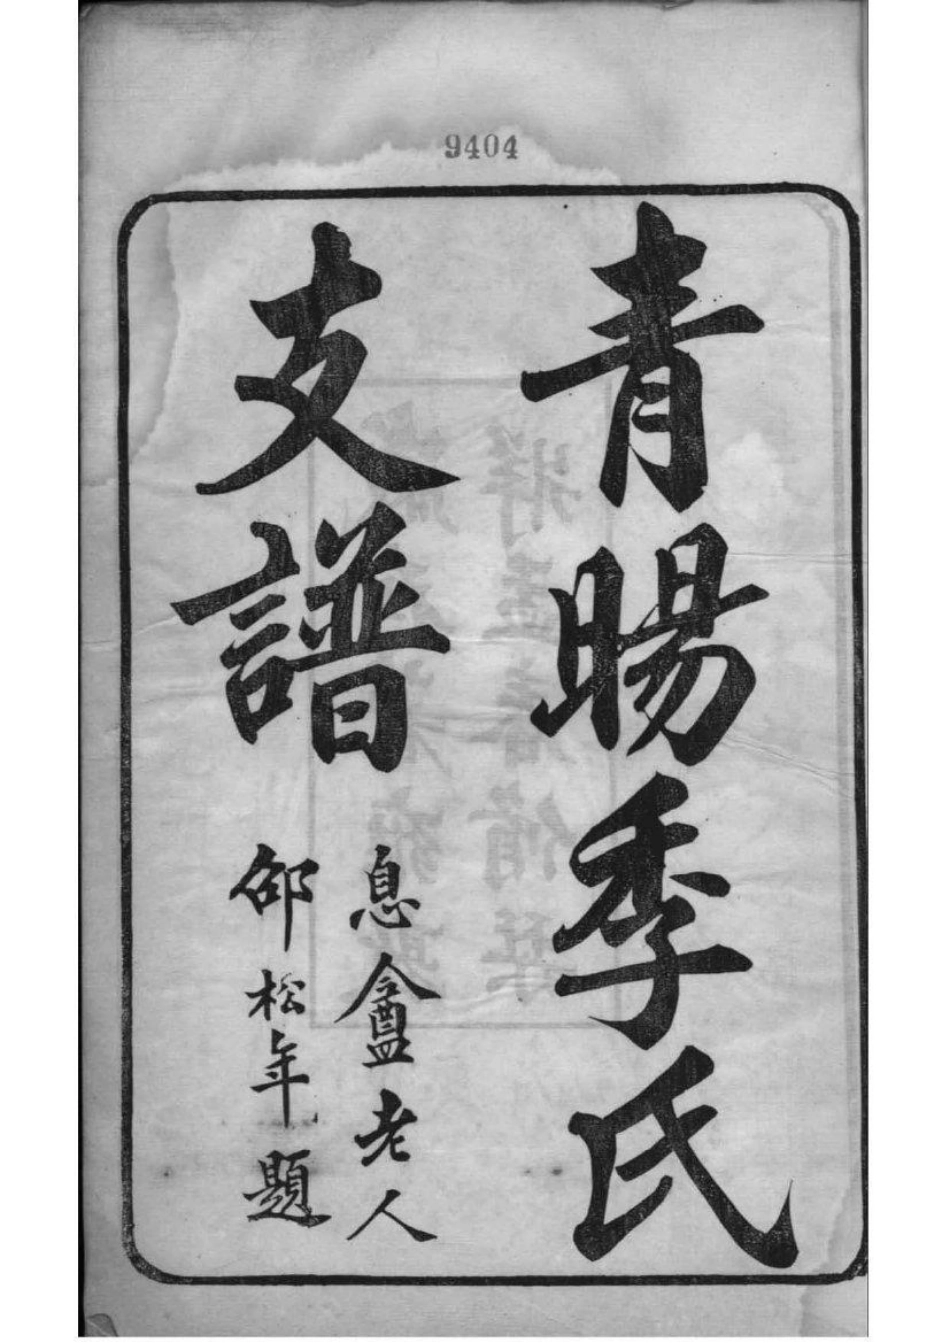 9404
青暘季氏
支譜
息盦老人
邵松年題